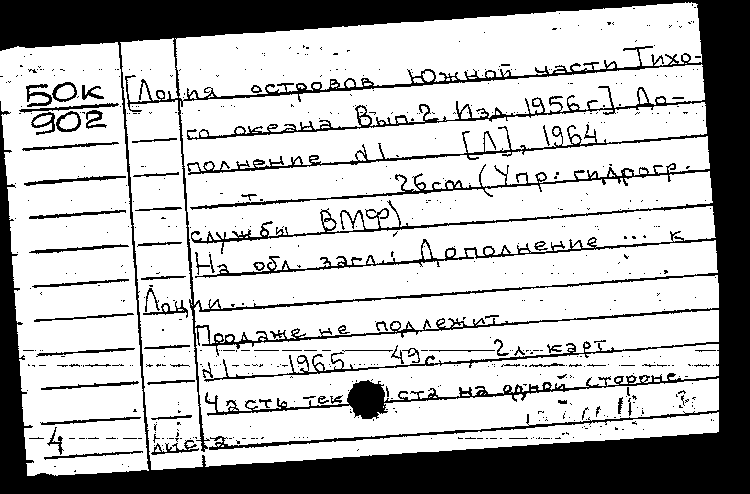 БОК
902
[Лоция островов Южной части Тихо-
го океана. Вып. 2. Изд. 1956 г.]. До-
полнение №1. [Л], 1964.
т. 26 cm. (Упр. гидрогр.
службы ВМФ).
На обл. загл.: Дополнение ... к
Лоции...
Продаже не подлежит.
№1. 1965. 49 с., 2 л. карт.
Часть текста на одной стороне
4 листа.